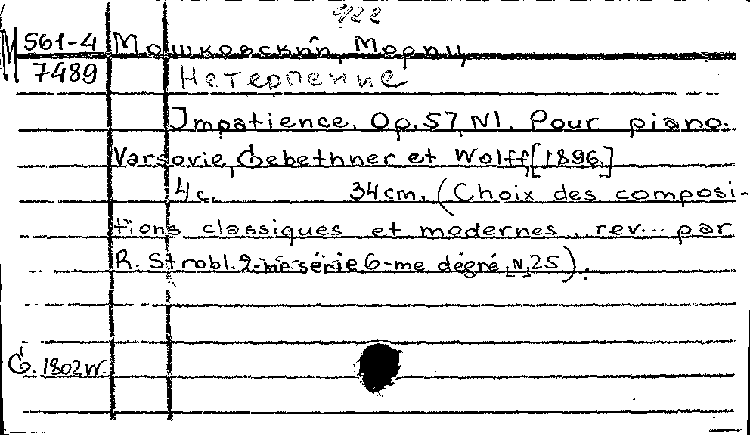 922
М 561-4 Мошковский, Мориц
7489 Нетерпение
Impatience. Op. 57, N1. Pour piano.
Varsovie, Gebethner et Wolff, [1896]
4 с. 34 cm. (Choix des composi-
tions classiques et modernes, rev... par
R. Strobl. 2-me série 6-me dégré, N, 25).
G. 1802 W.